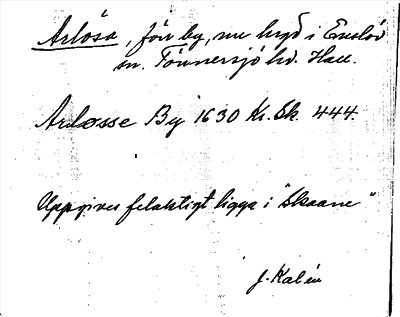 Arlösa, förr by, nu hygd i Enslöv
sn. Tönnersjö hd. Hall.
Arløsse By 1630 Kr. Sk. 444.
Uppgives felaktigt ligga i "Skaane"
J. Kalén